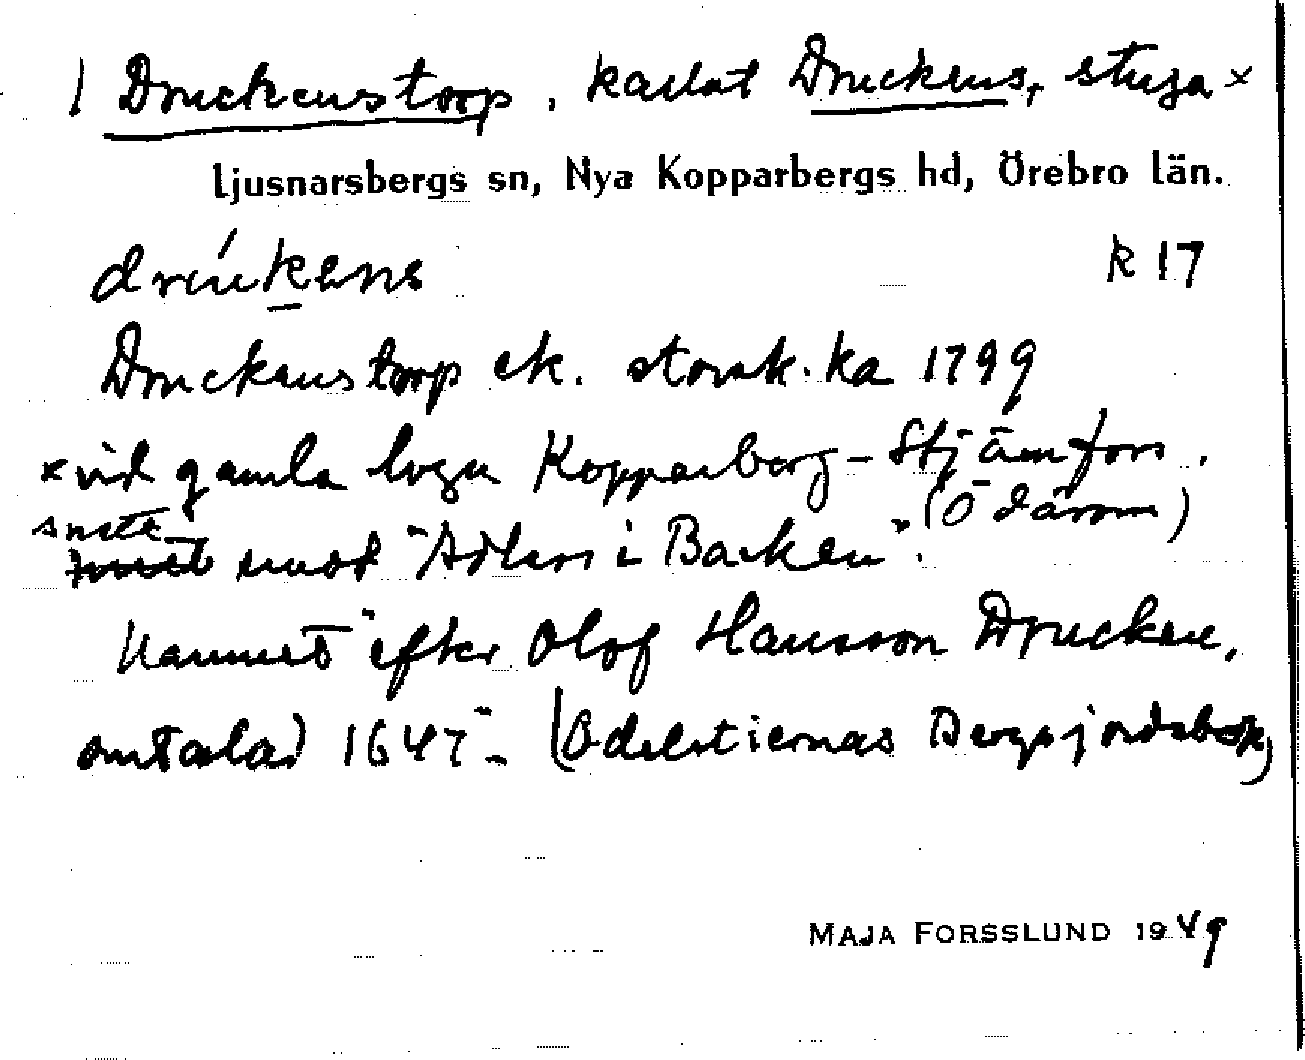 1 Druckenstorp, kallat Druckens, stuga x
Ljusnarsbergs sn, Nya Kopparbergs hd, Örebro län.
drúkens K 17
Druckenstorp ek. storsk. ka 1799
x vid gamla vägen Kopparberg - Stjärnfors.
(Ö därom)
snett
mot "Adlers i Backen".
Namnet "efter Olof Hansson Drucken,
omtalad 1647" - (Odelstiernas Bergsjordebok)
MAJA FORSSLUND 1949